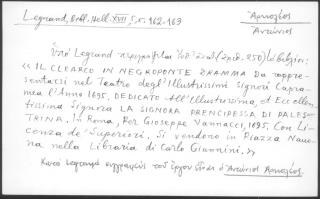 Legrand, Bibl. Hell. XVII 5, σ. 162-163
Άρποχέος
Αντώνιος
Ὑπὸ Legrand περιγράφεται
« IL CLEARCO IN NEGROPONTE DRAMMA Da rappre-
sentarsi nel Teatro degl'Illustrissimi Signori Capra-
nica l'Anno 1695. DEDICATO All'Illustrissima, et Eccellen-
tissima Signora LA SIGNORA PRENCIPESSA DI PALES-
TRINA. In Roma, Per Gioseppe Vannacci, 1695. Con Li-
cenza de' Superiori. Si vendono in Piazza Navo-
na nella Libraria di Carlo Giannini. »
Κατὰ Legrand συγγραφεὺς τοῦ ἔργου εἶναι ὁ Ἀντώνιος